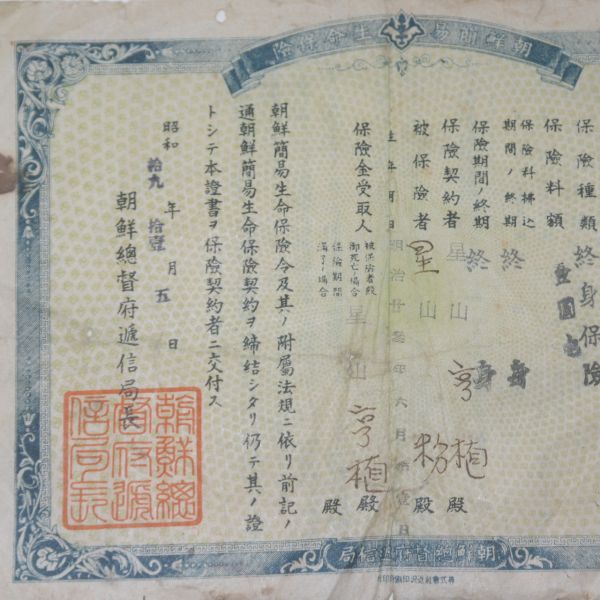 朝鮮簡易生命保險
保險種類 終身保險
保險料額 壹圓
保險料拂込期間ノ終期 終身
保險期間ノ終期 終身
保險契約者 星山亨植殿
被保險者 星山粉殿
生年月日 明治廿參年六月壹日
保險金受取人
被保險者殿御死亡ノ場合
保險期間滿了ノ場合
星山亨植殿
朝鮮簡易生命保險令及其ノ附屬法規ニ依リ前記ノ
通朝鮮簡易生命保險契約ヲ締結シタリ仍テ其ノ證
トシテ本證書ヲ保險契約者ニ交付ス
昭和拾九年拾壹月五日
朝鮮總督府遞信局長
朝鮮總督府遞信局長
朝鮮總督府遞信局